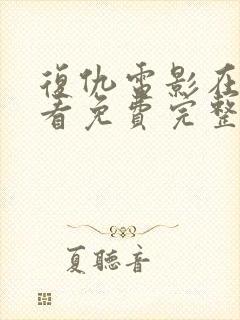 復仇雷影在
看免費完整
夏聽音